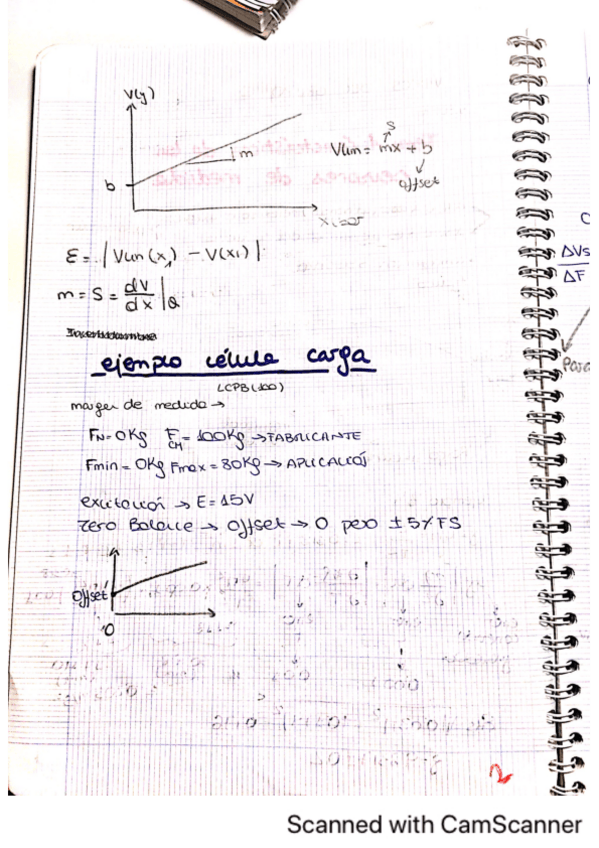 V(y)
m
b
S
Vlin = mx + b
offset
ε = |Vlin(x,) - V(xi)|
m = S = dV/dx |Q
ejemplo célula carga
LCPB(100)
margen de medida →
FN = 0Kg FCM = 100Kg → FABRICANTE
Fmin = 0Kg Fmax = 80Kg → APLICACIÓN
excitación → E = 15V
Zero Balance → Offset → 0 pero ± 5% FS
Offset
0
2
ΔVs
ΔF
Para
Scanned with CamScanner